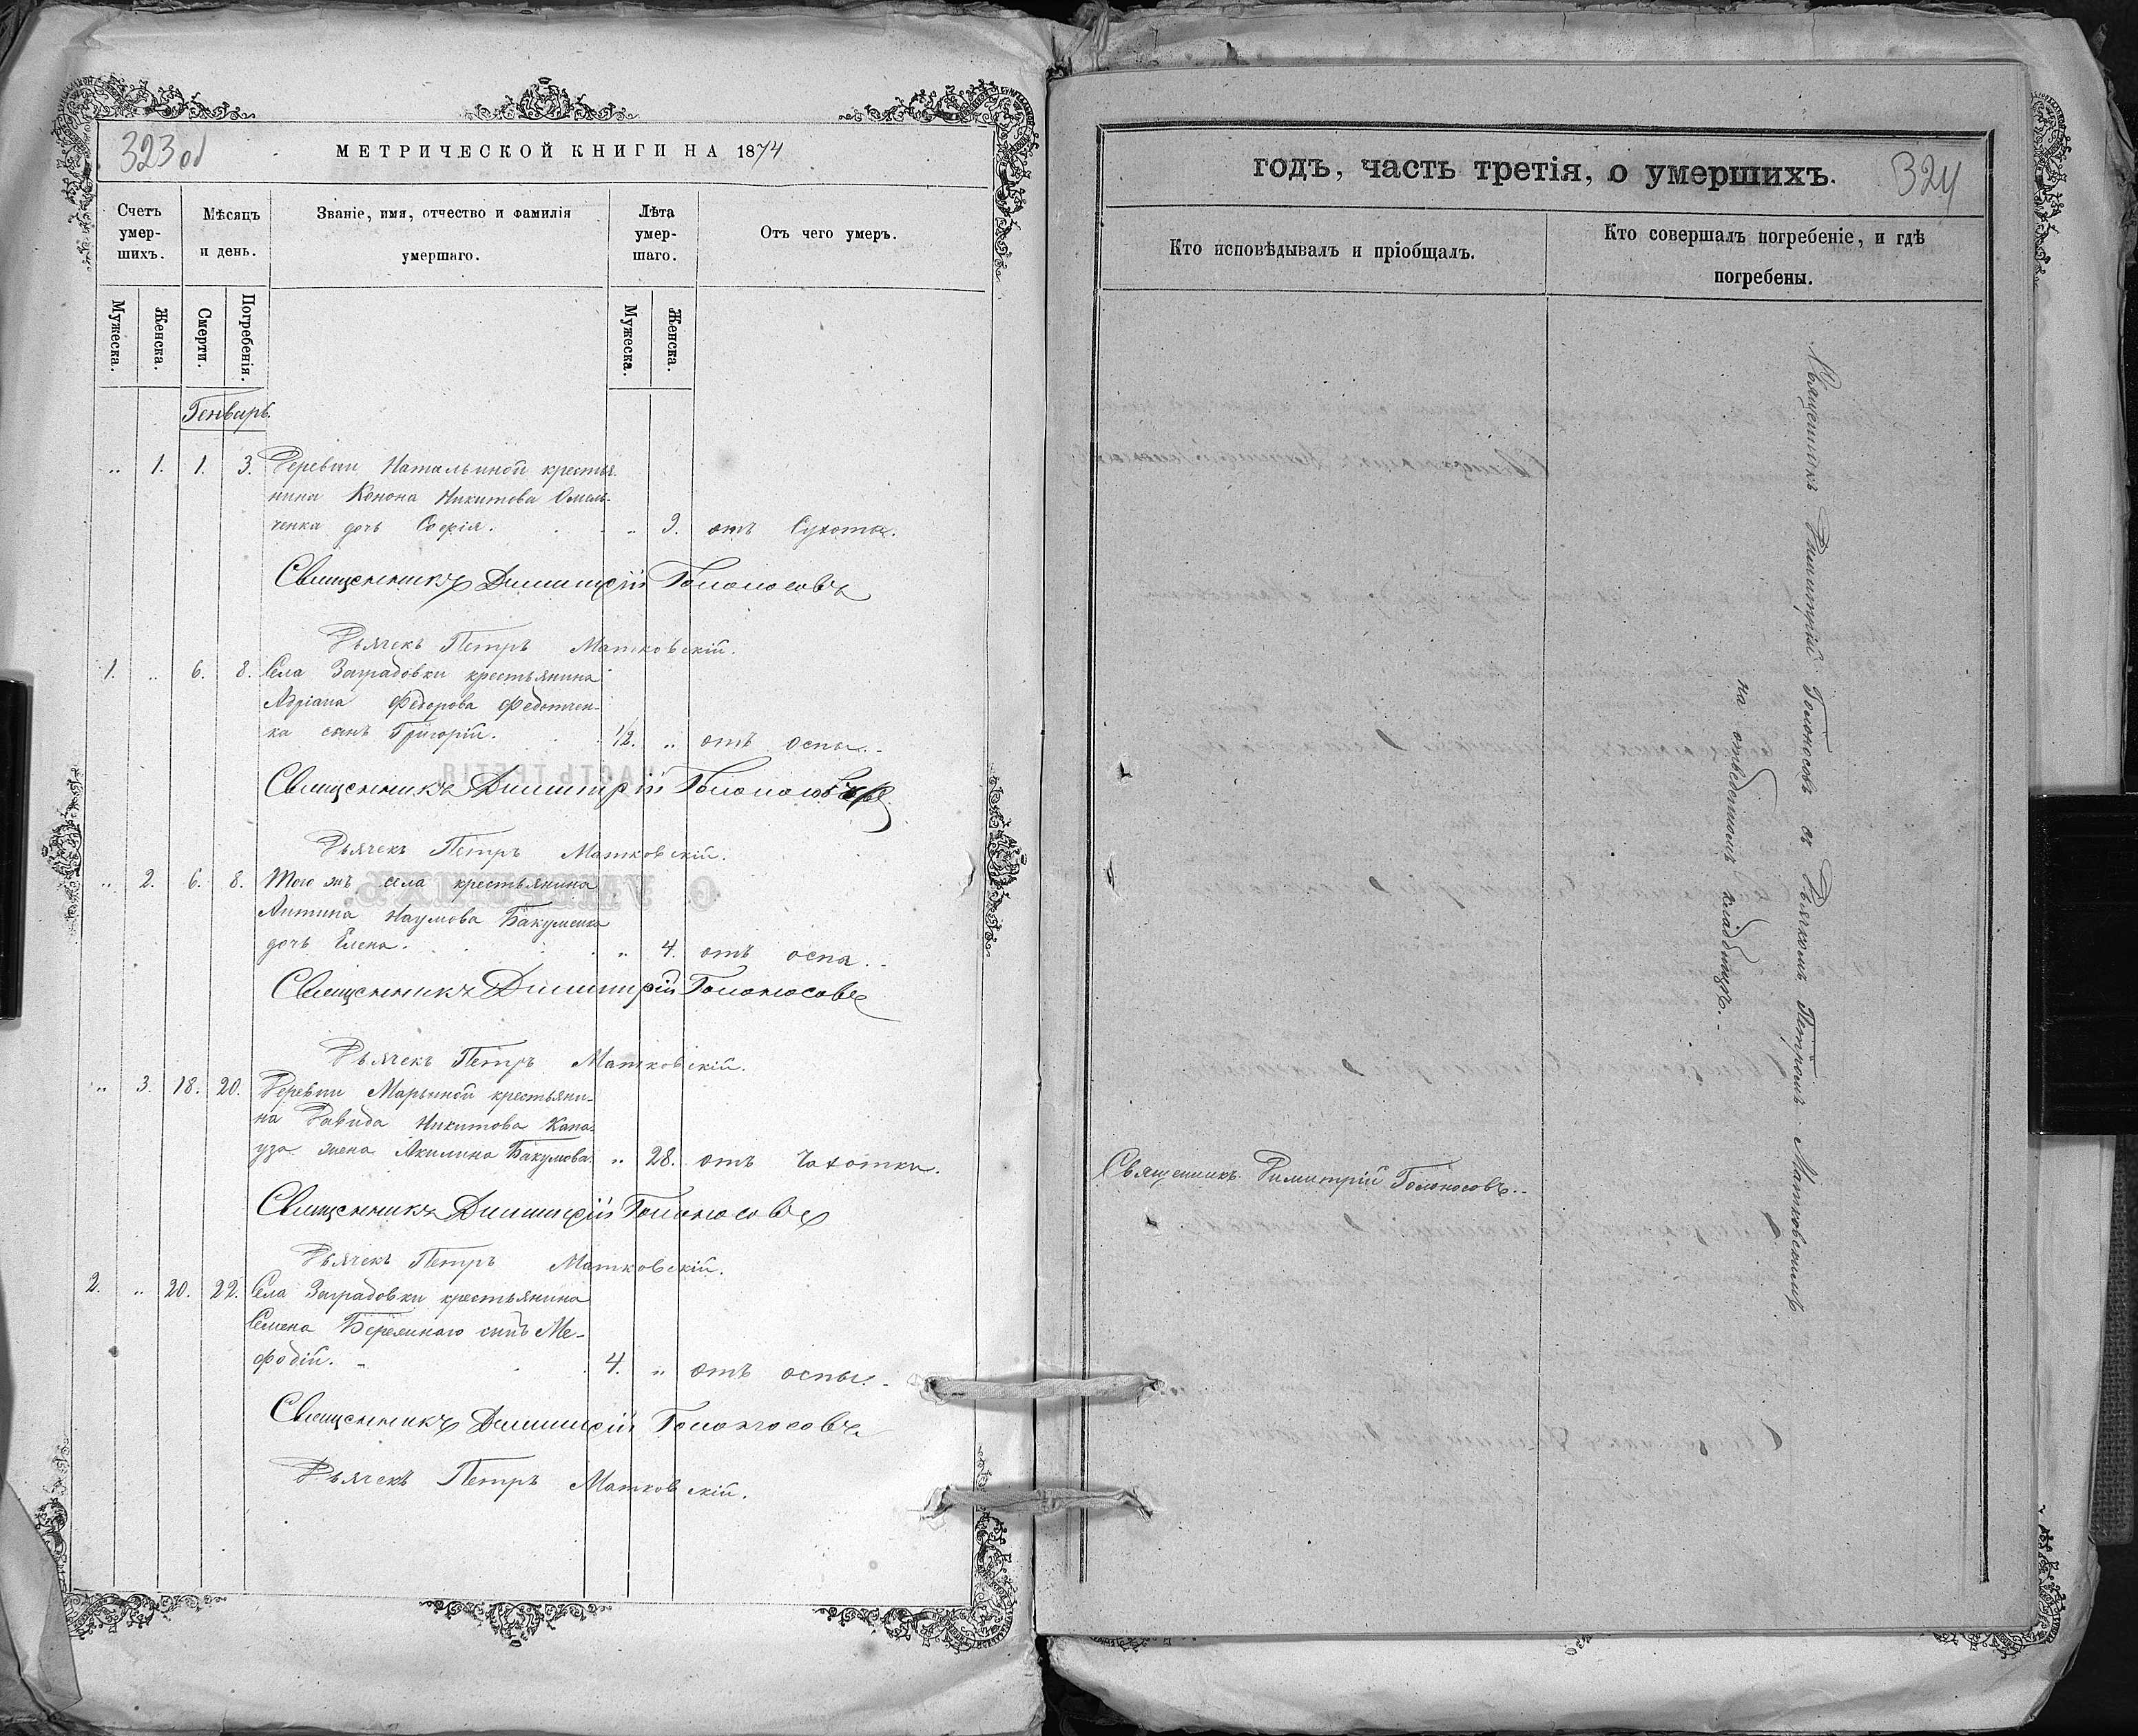 323 об
МЕТРИЧЕСКОЙ КНИГИ НА 1874
Счетъ умер-шихъ.
Мѣсяцъ и день.
Званіе, имя, отчество и фамилія умершаго.
Лѣта умер-шаго.
Отъ чего умеръ.
Мужеска.
Женска.
Смерти.
Погребенія.
Мужеска.
Женска.
Генварь.
„ 1. 1. 3. Деревни Натальиной крестья-
нина Конона Никитова Омель-
ченка дочь Софія. „ 9. отъ Сухота.
Священникъ Димитрій Голоносовъ
Дьячекъ Петръ Матковскій.
1. „ 6. 8. Села Заградовки крестьянина
Адріана Федорова Федотчен-
ка сынъ Григорій. 1/2. „ отъ оспы.
Священникъ Димитрій Голоносовъ
Дьячекъ Петръ Матковскій.
„ 2. 6. 8. Того жъ села крестьянина
Антипа Наумова Бакуменка
дочь Елена. „ 4. отъ оспы.
Священникъ Димитрій Голоносовъ
Дьячекъ Петръ Матковскій.
„ 3. 18. 20. Деревни Марьиной крестьяни-
на Давида Никитова Капа-
уза жена Акилина Бакумова. „ 28. отъ Чахотки.
Священникъ Димитрій Голоносовъ
Дьячекъ Петръ Матковскій.
2. „ 20. 22. Села Заградовки крестьянина
Семена Беремнаго сынъ Ме-
фодій. 4. „ отъ оспы.
Священникъ Димитрій Голоносовъ
Дьячекъ Петръ Матковскій.
годъ, часть третія, о умершихъ.
324
Кто исповѣдывалъ и пріобщалъ.
Кто совершалъ погребеніе, и гдѣ
погребены.
Священникъ Димитрій Голоносовъ.
Священникъ Димитрій Голоносовъ съ Дьячкомъ Петромъ Матковскимъ
на отведенномъ кладбищѣ.